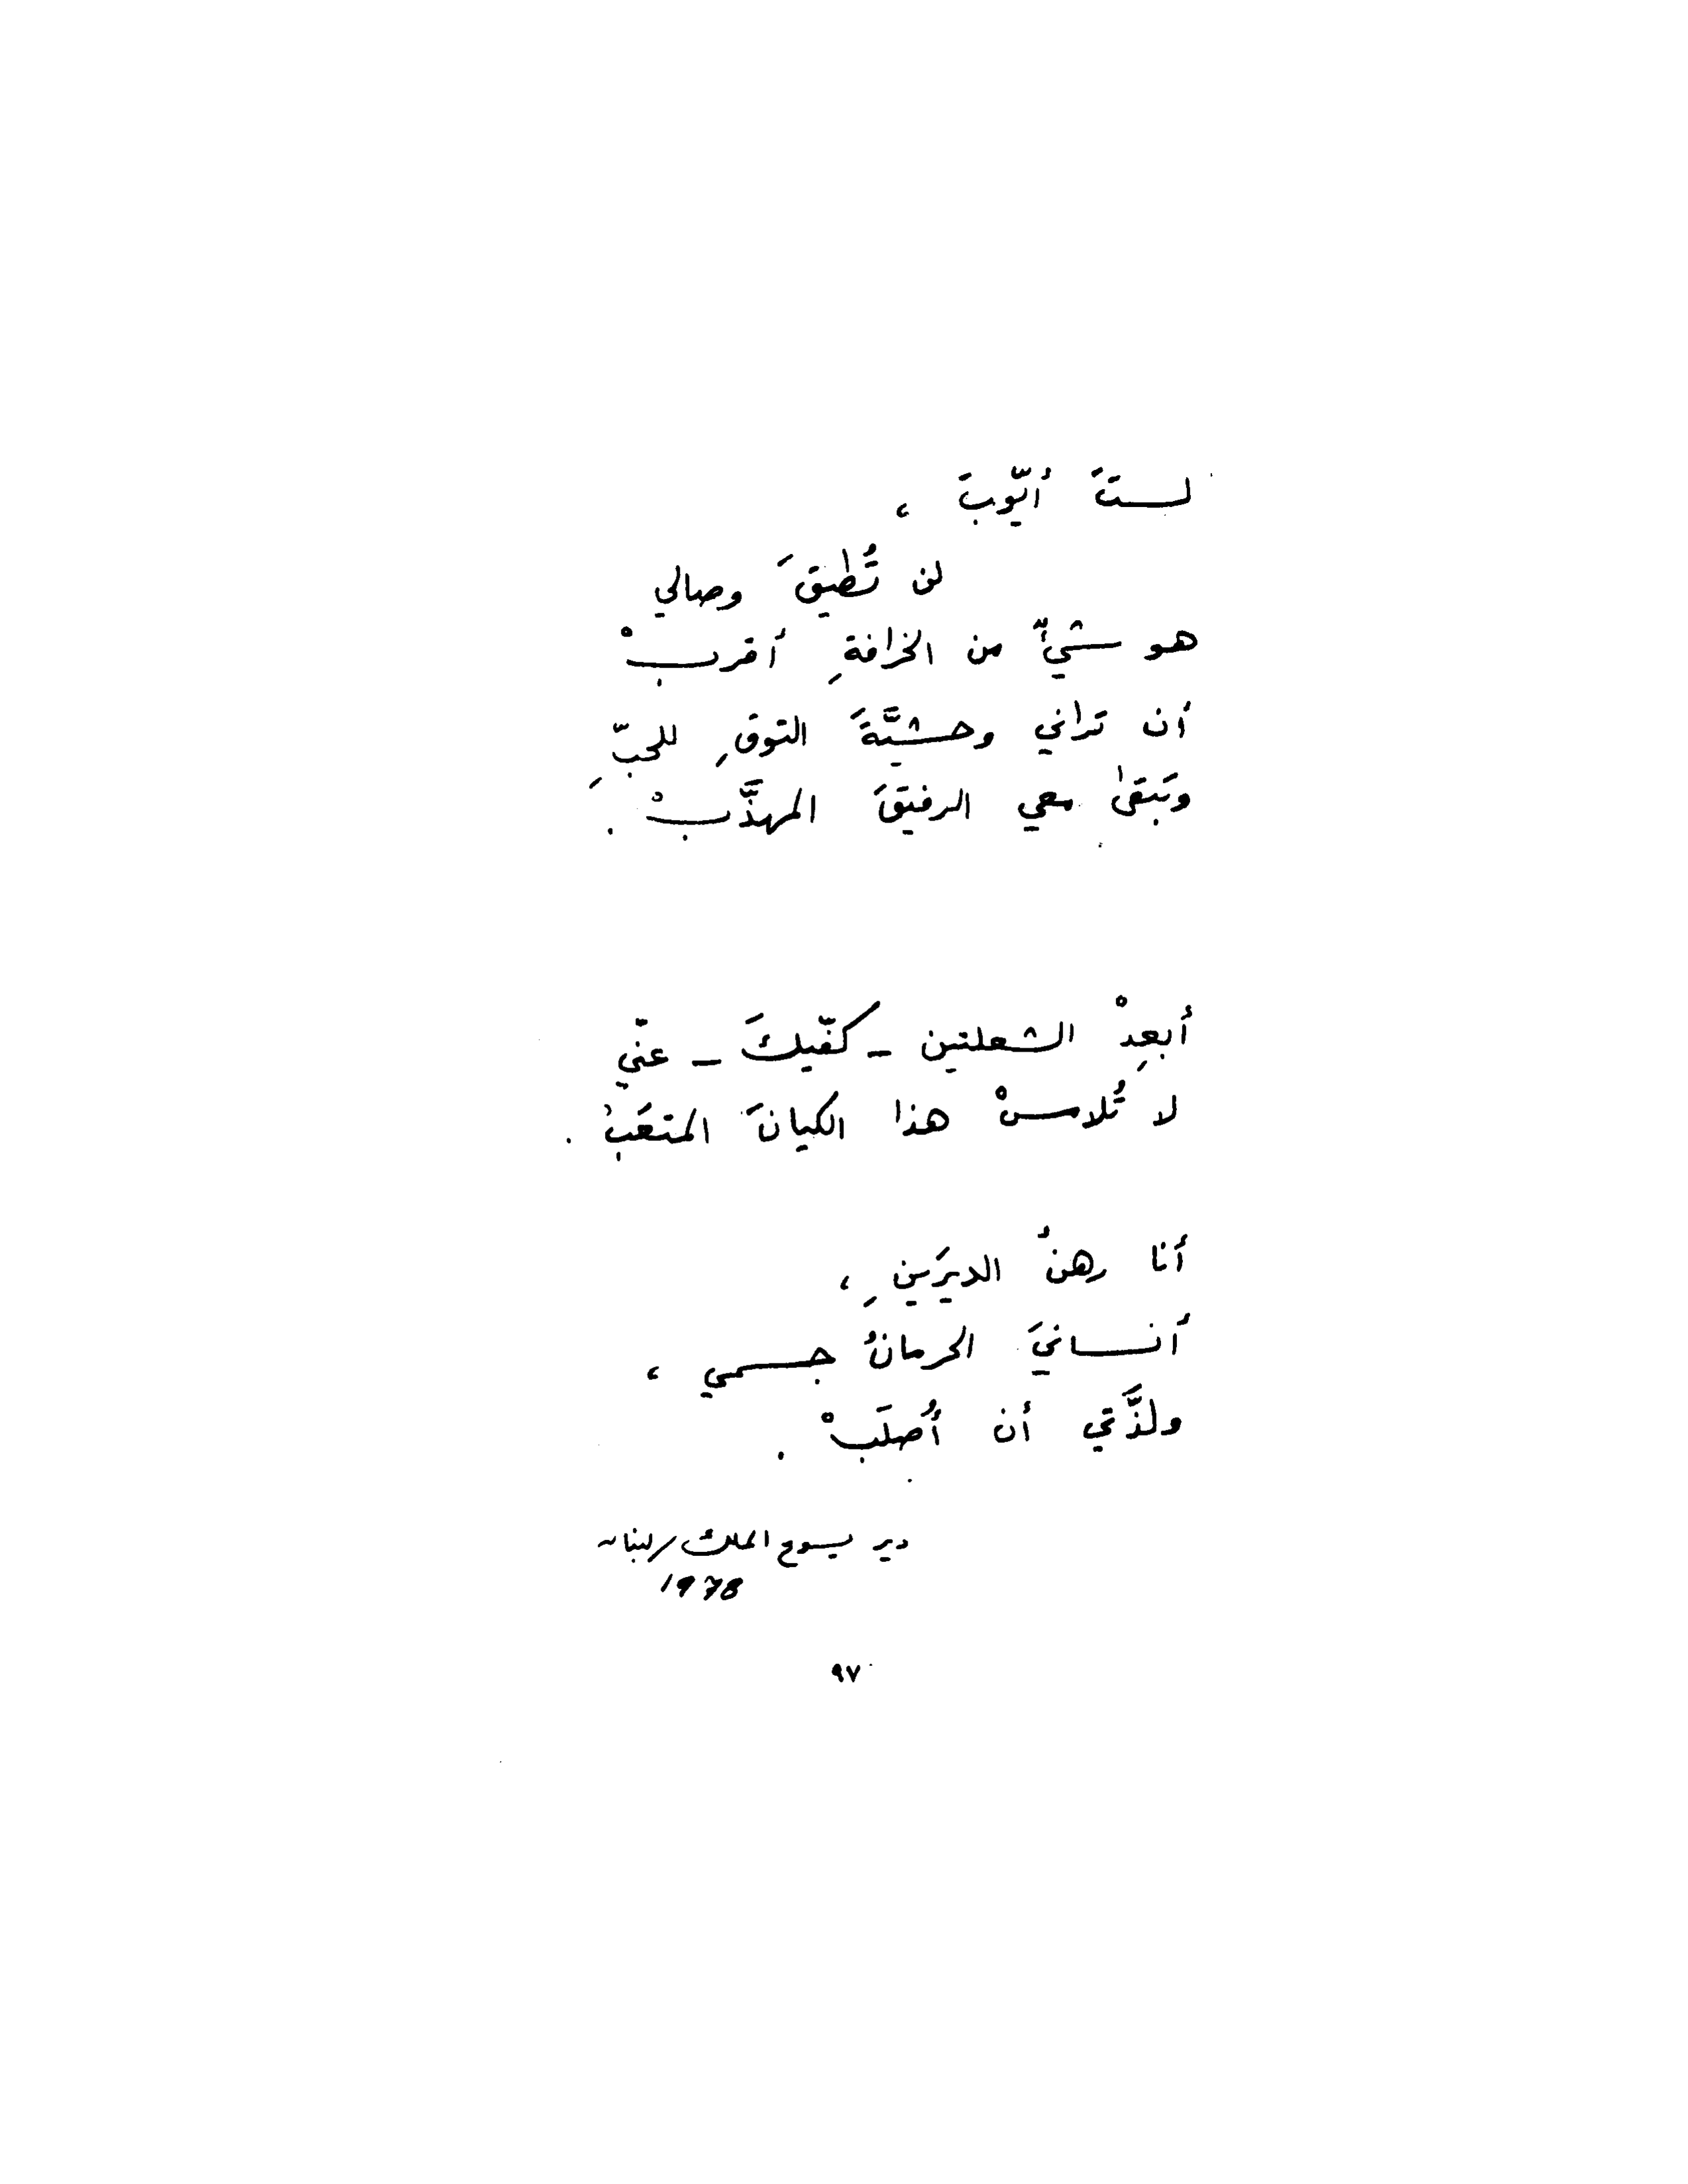 لستَ أيّوبَ ،
لن تُطيقَ وصالي
هو شيءٌ من الخرافةِ أقربْ
أن تراني وحشيَّةَ التوقِ للحبِّ
وتَبقىٰ معي الرفيقَ المهذَّبْ .
أبعِدْ الشعلتين - كفّيكَ - عنّي
لا تُلامسْ هذا الكيانَ المتعَبْ .
أنا رهنُ الديرَينِ ،
أنسانيَ الحرمانُ جسمي ،
ولذَّتي أن أُصلَبْ .
دير يسوع الملك / لبنان
1978
٩٧